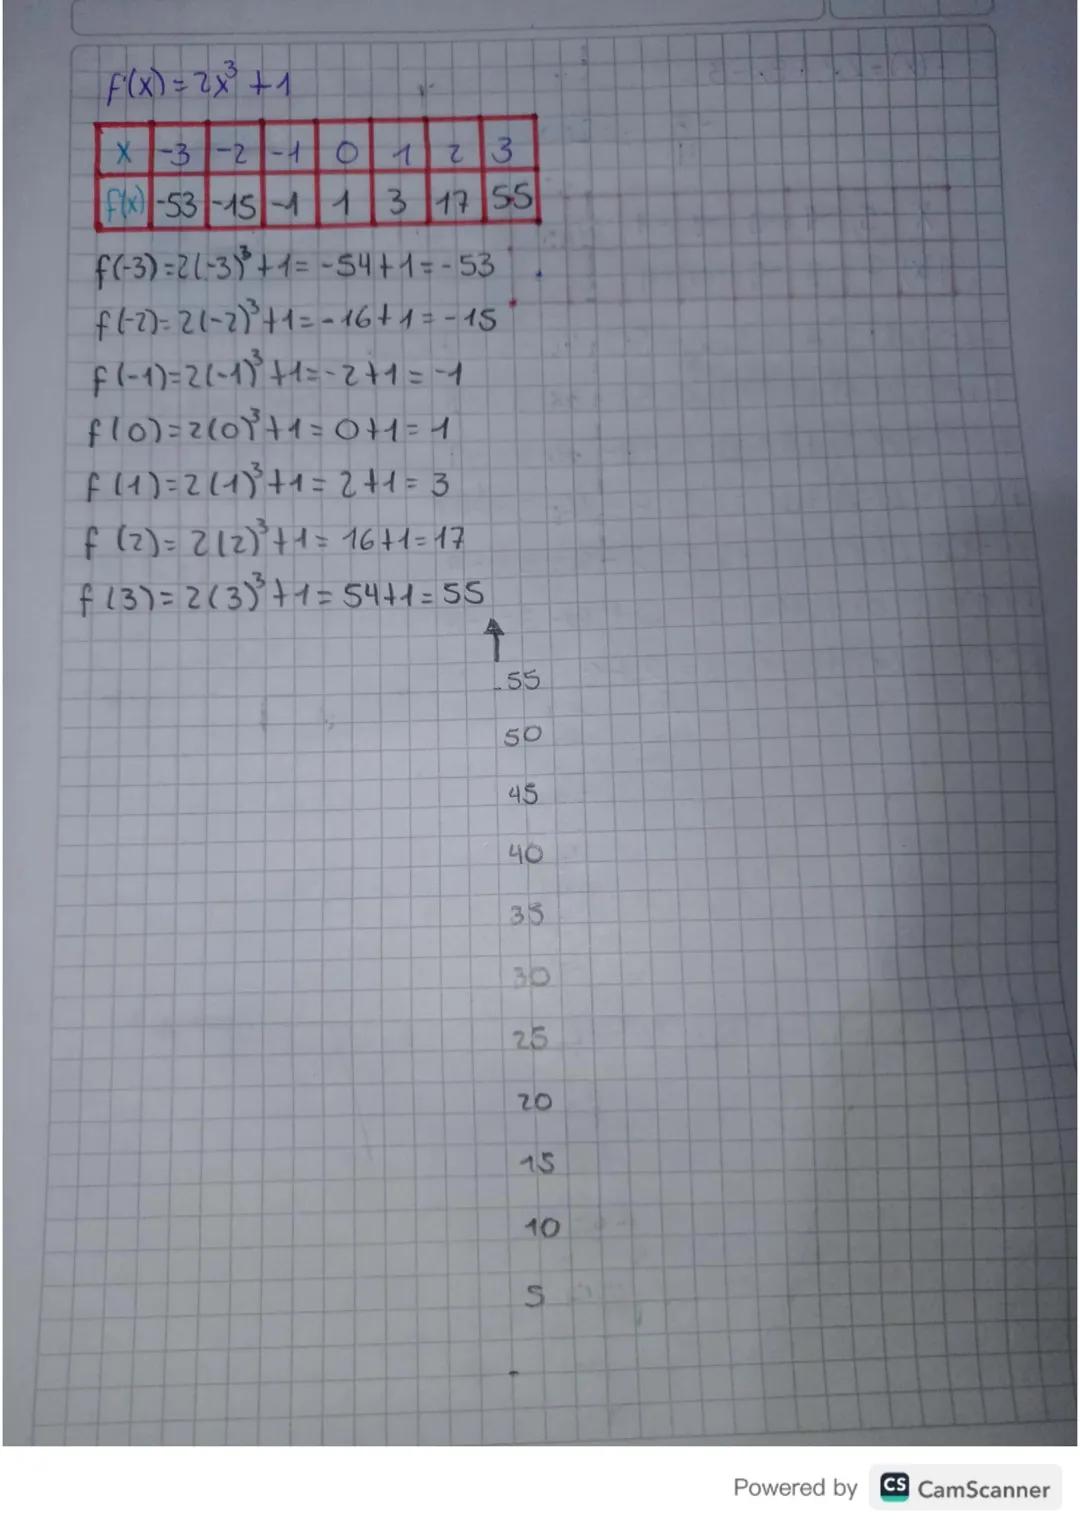 f(x)=2x³+1
x -3 -2 -1 0 1 2 3
f(x) -53 -15 -1 1 3 17 55
f(-3)=2(-3)³+1=-54+1=-53
f(-2)=2(-2)³+1=-16+1=-15
f(-1)=2(-1)³+1=-2+1=-1
f(0)=2(0)³+1=0+1=1
f(1)=2(1)³+1=2+1=3
f(2)=2(2)³+1=16+1=17
f(3)=2(3)³+1=54+1=55
55
50
45
40
35
30
25
20
15
10
5
Powered by CS CamScanner